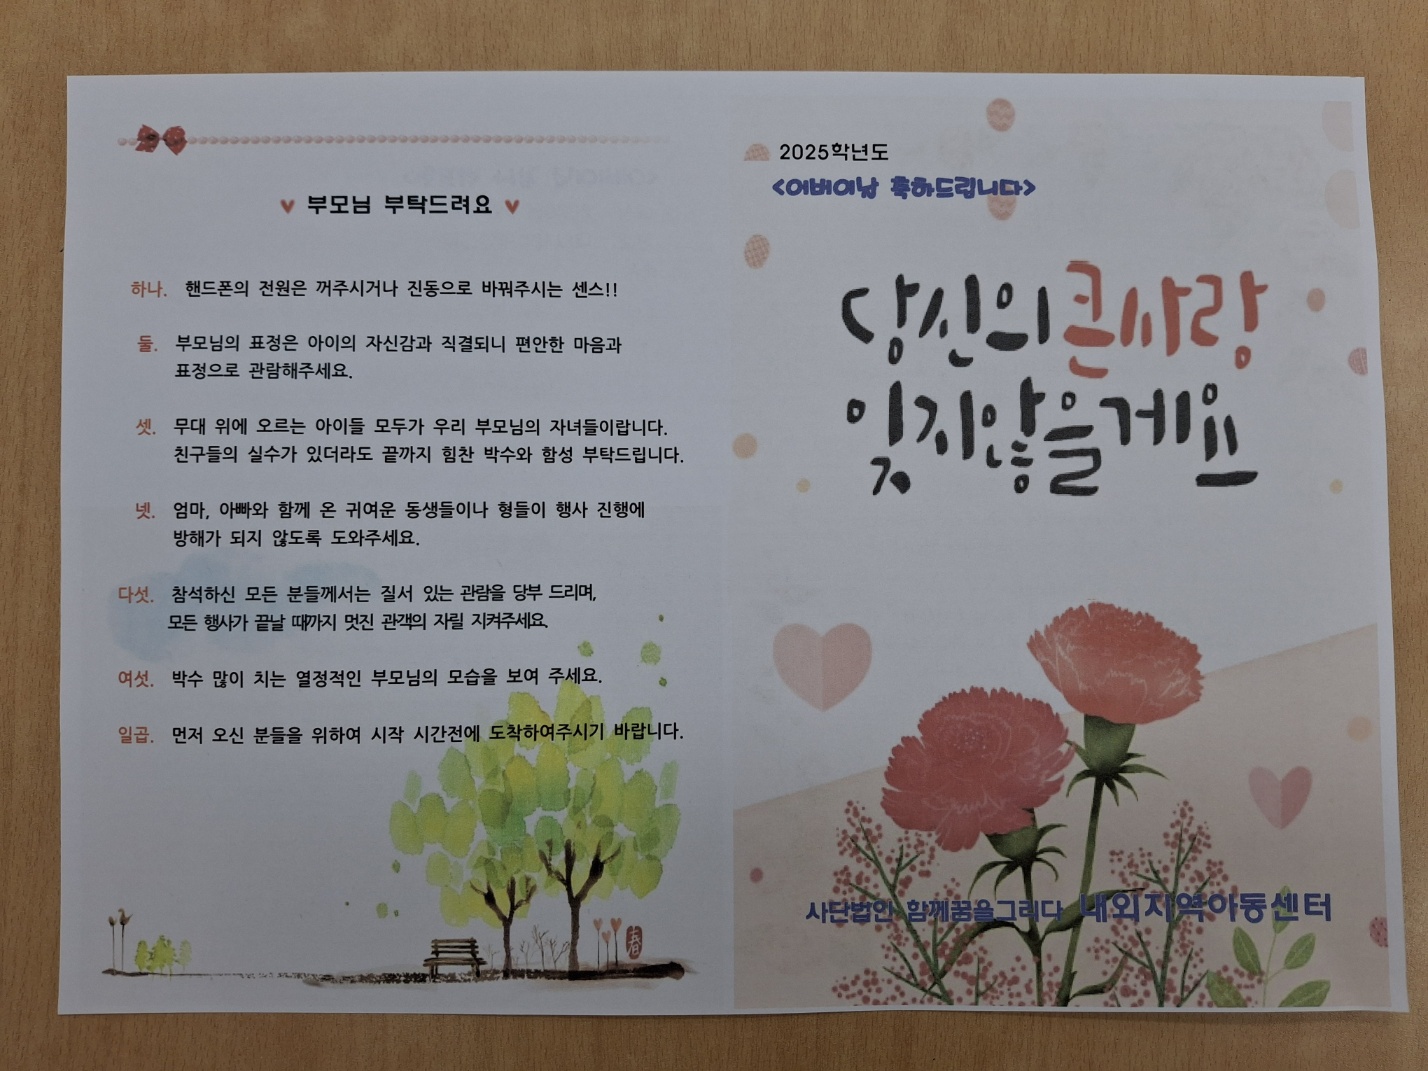 ♥ 부모님 부탁드려요 ♥
하나. 핸드폰의 전원은 꺼주시거나 진동으로 바꿔주시는 센스!!
둘. 부모님의 표정은 아이의 자신감과 직결되니 편안한 마음과
표정으로 관람해주세요.
셋. 무대 위에 오르는 아이들 모두가 우리 부모님의 자녀들이랍니다.
친구들의 실수가 있더라도 끝까지 힘찬 박수와 함성 부탁드립니다.
넷. 엄마, 아빠와 함께 온 귀여운 동생들이나 형들이 행사 진행에
방해가 되지 않도록 도와주세요.
다섯. 참석하신 모든 분들께서는 질서 있는 관람을 당부 드리며,
모든 행사가 끝날 때까지 멋진 관객의 자릴 지켜주세요.
여섯. 박수 많이 치는 열정적인 부모님의 모습을 보여 주세요.
일곱. 먼저 오신 분들을 위하여 시작 시간전에 도착하여주시기 바랍니다.
春
2025학년도
<어버이날 축하드립니다>
당신의 큰사랑
잊지않을게요
사단법인 함께꿈을그리다 내외지역아동센터